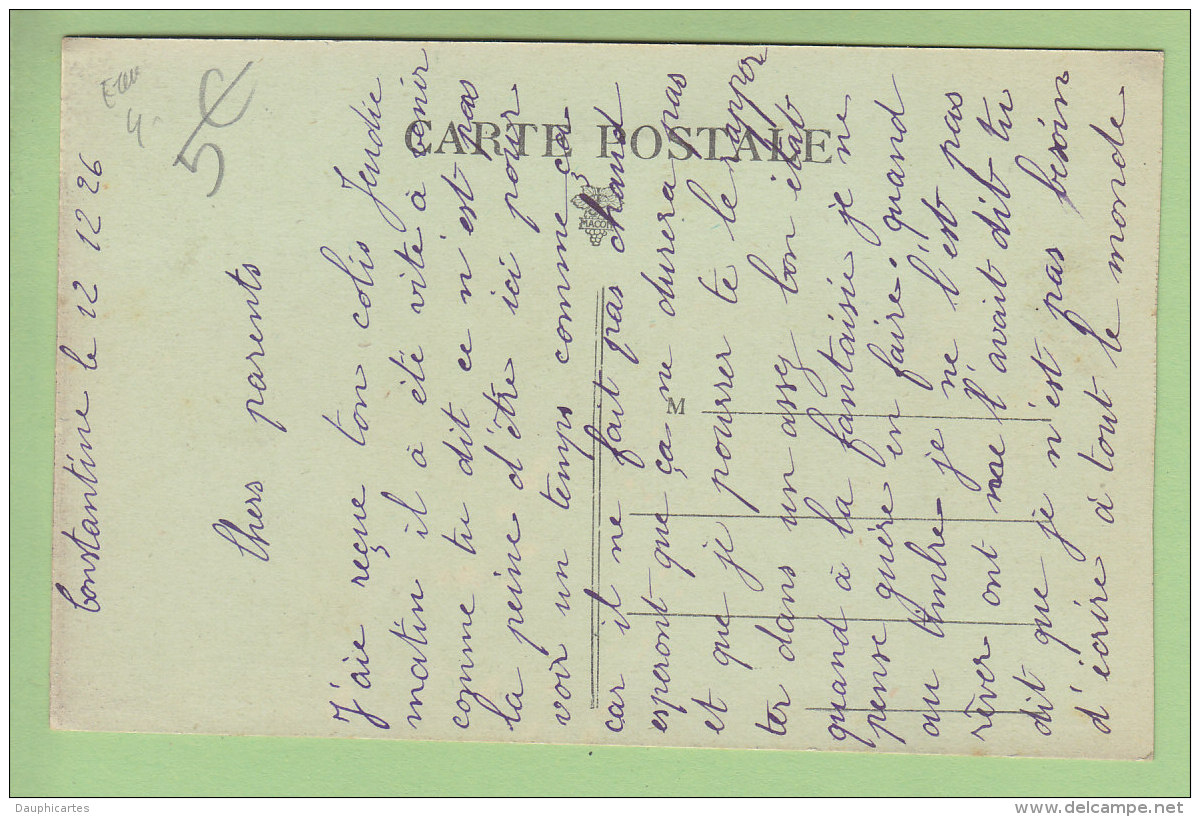 Constantine le 12 12 26
5€
Chers parents
J'aie reçue ton colis Jeudie
matin il à été vite à venir
comme tu dit ce n'est pas
la peine d'être ici pour
voir un temps comme ça
car il ne fait pas chaud
esperont que ça ne durera pas
et que je pourrer te le rappor
ter dans un assez bon état
quand à la fantaisie je ne
pense guère en faire. quand
au timbre je ne l'est pas
rêver ont me l'avait dit tu
dit que je n'est pas besoin
d'écrire à tout le monde
CARTE POSTALE
MACON
M
Dauphicartes
http://www.delcampe.net